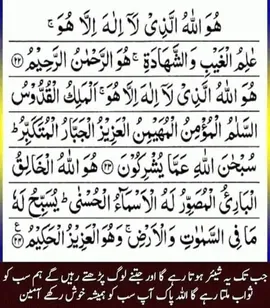 هُوَ اللّٰهُ الَّذِىْ لَاۤ اِلٰهَ اِلَّا هُوَ ۚ
عٰلِمُ الْغَيْبِ وَالشَّهَادَةِ ۚ هُوَ الرَّحْمٰنُ الرَّحِيْمُ ﴿۲۲﴾
هُوَ اللّٰهُ الَّذِىْ لَاۤ اِلٰهَ اِلَّا هُوَ ۚ اَلْمَلِكُ الْقُدُّوْسُ
السَّلٰمُ الْمُؤْمِنُ الْمُهَيْمِنُ الْعَزِيْزُ الْجَبَّارُ الْمُتَكَبِّرُ ؕ
سُبْحٰنَ اللّٰهِ عَمَّا يُشْرِكُوْنَ ﴿۲۳﴾ هُوَ اللّٰهُ الْخَالِقُ
الْبَارِئُ الْمُصَوِّرُ لَهُ الْاَسْمَآءُ الْحُسْنٰى ؕ يُسَبِّحُ لَهٗ
مَا فِى السَّمٰوٰتِ وَالْاَرْضِ ۚ وَهُوَ الْعَزِيْزُ الْحَكِيْمُ ﴿۲۴﴾ ع
جب تک یہ شیئر ہوتا رہے گا اور جتنے لوگ پڑھتے رہیں گے ہم سب کو
ثواب ملتا رہے گا اللہ پاک آپ سب کو ہمیشہ خوش رکھے آمین